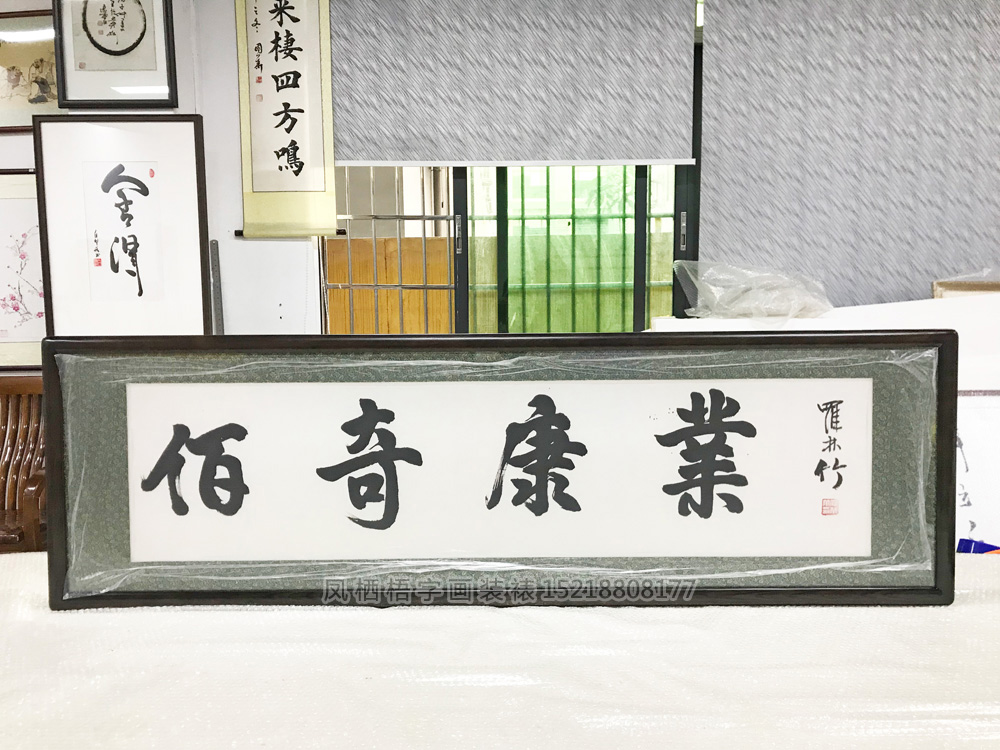 來棲四方鳴
舍得
佰奇康業
羅林竹
凤栖梧字画装裱 15218808177